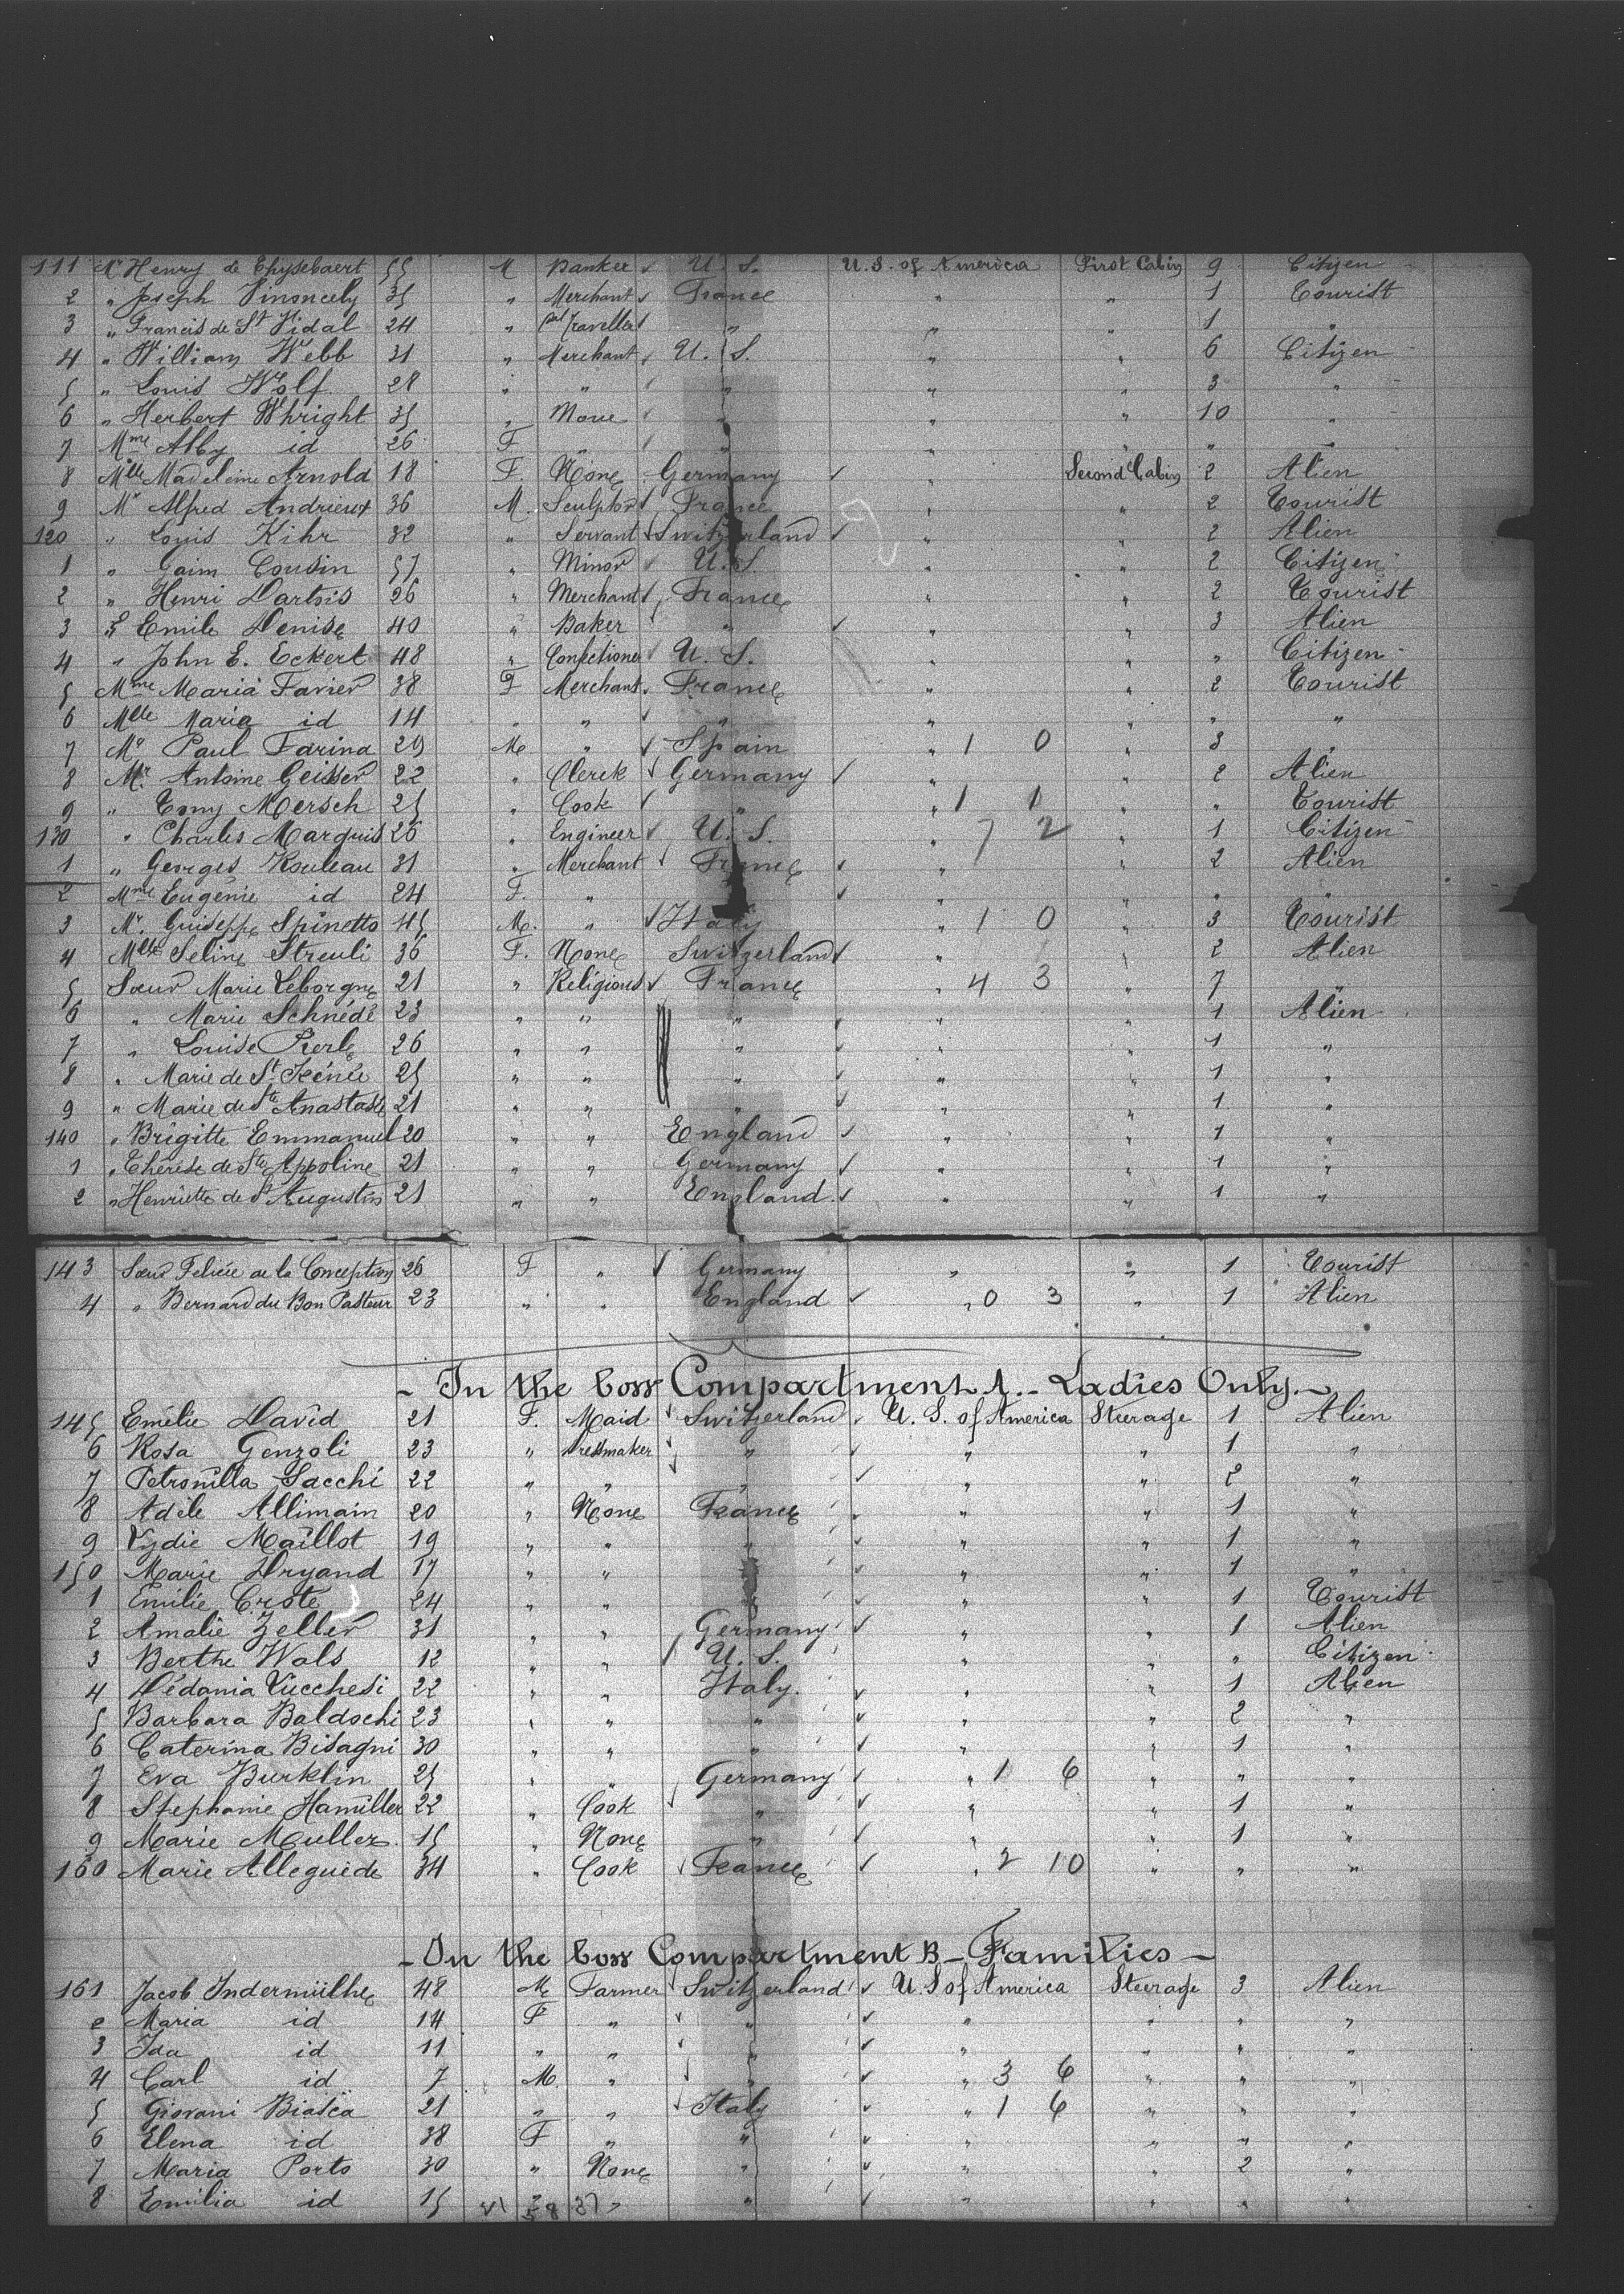 111 Mr Henry de Thysebaert 55 M Banker ✓ U. S. U. S. of America First Cabin 9 Citizen
2 " Joseph Vinoncely 35 " Merchant ✓ France " " 1 Tourist
3 " Francis de St Vidal 24 " Traveller ✓ " " " 1 "
4 " William Webb 31 " Merchant ✓ U. S. " " 6 Citizen
5 " Louis Wolf 28 " " " " " 3 "
6 " Herbert Whright 35 " None " " " 10 "
7 Mme Alby id 26 F " " " " " "
8 Mlle Madeleine Arnold 18 F. None Germany ✓ " Second Cabin 2 Alien
9 Mr Alfred Andrieux 36 M. Sculptor ✓ France " " 2 Tourist
120 " Louis Kihr 32 " Servant ✓ Switzerland ✓ " " 2 Alien
1 " Gaim Cousin 57 " Minor ✓ U. S. " " 2 Citizen
2 " Henri Dartois 26 " Merchant ✓ France " " 2 Tourist
3 " Emile Denise 40 " Baker " ✓ " " 3 Alien
4 " John E. Eckert 48 " Confectioner ✓ U. S. " " " Citizen
5 Mme Maria Favier 38 F Merchant France " " 2 Tourist
6 Mlle Maria id 14 " " ✓ " " " " "
7 Mr Paul Farina 29 M. " ✓ Spain " 1 0 " 3 "
8 Mr Antoine Geisser 22 " Clerck ✓ Germany ✓ " " 2 Alien
9 " Tony Mersch 25 " Cook ✓ " " 1 1 " " Tourist
130 " Charles Marquis 26 " Engineer ✓ U. S. " 7 2 " 1 Citizen
1 " Georges Rouleau 31 " Merchant ✓ France ✓ " " 2 Alien
2 Mme Eugénie id 24 F. " ✓ " " " "
3 Mr Guiseppe Spinetto 45 M. " ✓ Italy " 1 0 " 3 Tourist
4 Mlle Seline Streuli 36 F. None Switzerland ✓ " " 2 Alien
5 Sœur Marie Leborgne 21 " Religious ✓ France " 4 3 " 7 "
6 " Marie Schnédé 23 " " " ✓ " " 1 Alien
7 " Louise Pierle 26 " " " ✓ " " 1 "
8 " Marie de St Irénée 25 " " " ✓ " " 1 "
9 " Marie de Ste Anastasie 21 " " " ✓ " " 1 "
140 " Brigitte Emmanuel 20 " " England ✓ " " 1 "
1 " Thérèse de Ste Appoline 21 " " Germany ✓ " " 1 "
2 " Henriette de St Augustin 21 " " England ✓ " " 1 "
143 Sœur Felicie de la Conception 26 F " ✓ Germany " " 1 Tourist
4 " Bernard du Bon Pasteur 23 " " England ✓ " 0 3 " 1 Alien
- In the tow Compartment A. - Ladies Only. -
145 Emélie David 21 F. Maid ✓ Switzerland ✓ U. S. of America Steerage 1 Alien
6 Rosa Genzoli 23 " Dressmaker ✓ " ✓ " " 1 "
7 Petronilla Sacchi 22 " " ✓ " ✓ " " 2 "
8 Adèle Allimain 20 " None France ✓ " " 1 "
9 Lydie Maillot 19 " " " ✓ " " 1 "
150 Marie Dryand 17 " " " ✓ " " 1 "
1 Emilie Crote 24 " " " ✓ " " 1 Tourist
2 Amalie Zeller 31 " " Germany ✓ " " 1 Alien
3 Berthe Wals 12 " " U. S. " " " Citizen
4 Dédania Lucchesi 22 " " Italy. ✓ " " 1 Alien
5 Barbara Baldochi 23 " " " ✓ " " 2 "
6 Caterina Bisagni 30 " " " ✓ " " 1 "
7 Eva Burklin 25 " " Germany ✓ " 1 6 " " "
8 Stephanie Hamiller 22 " Cook ✓ " ✓ " " 1 "
9 Marie Muller 15 " None " ✓ " " 1 "
160 Marie Alleguede 34 " Cook ✓ France ✓ " 2 10 " " "
- In the tow Compartment B - Families -
161 Jacob Indermülhe 48 M Farmer ✓ Switzerland ✓ U. S of America Steerage 3 Alien
2 Maria id 14 F " ✓ " ✓ " " " "
3 Ida id 11 " " ✓ " ✓ " " " "
4 Carl id 7 M. " ✓ " ✓ " 3 6 " " "
5 Giovani Biasca 21 " " ✓ Italy ✓ " 1 6 " " "
6 Elena id 38 F " " ✓ " " " "
7 Maria Porto 30 " None " ✓ " " 2 "
8 Emilia id 15 " " " ✓ " " " "